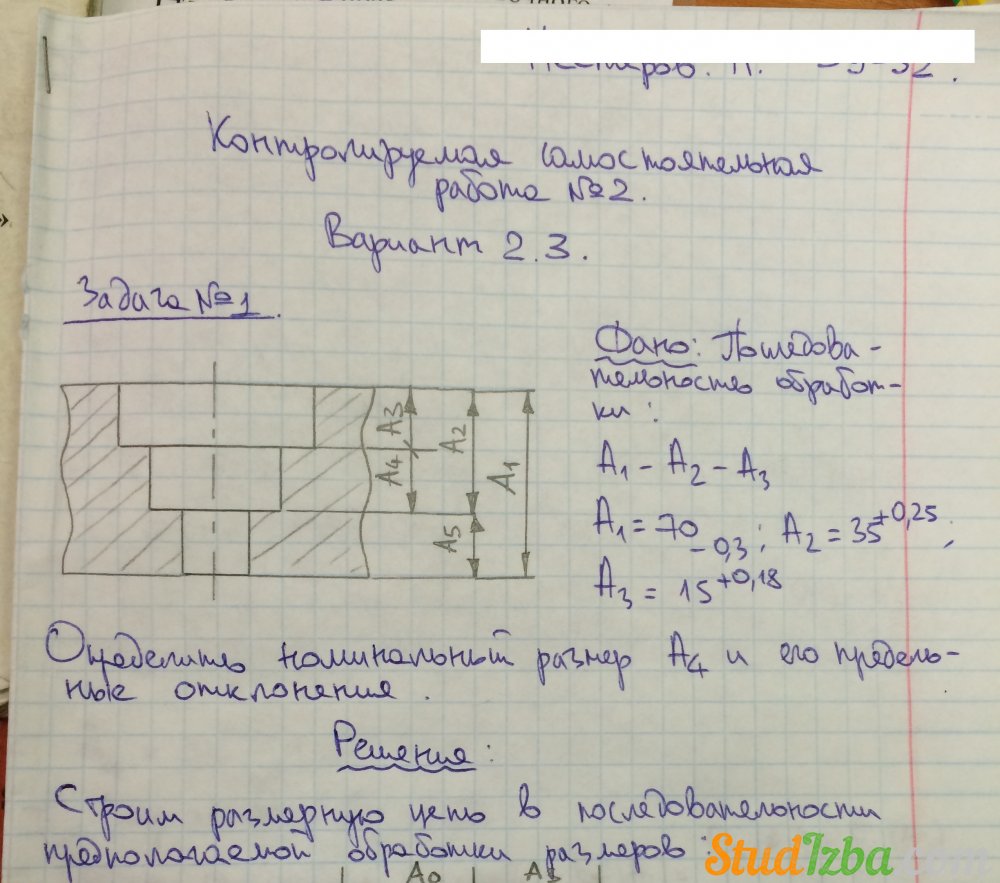 Контролируемая самостоятельная
работа №2.
Вариант 2.3.
Задача №1.
Дано: Последова-
тельность обработ-
ки:
A1 - A2 - A3
A1 = 70 -0,3; A2 = 35 +0,25;
A3 = 15 +0,18
A3
A4
A2
A5
A1
Определить номинальный размер A4 и его предель-
ные отклонения.
Решения:
Строим размерную цепь в последовательности
предпологаемой обработки размеров:
StudIzba.com